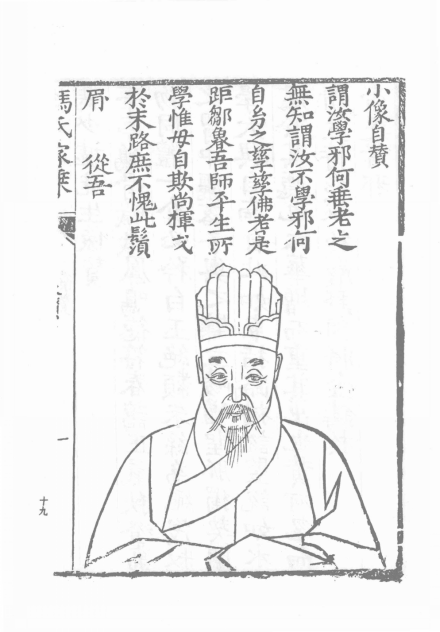 小像自贊
謂汝學邪何垂老之
無知謂汝不學邪何
自幼之孳孳佛老是
距鄒魯吾師平生所
學惟毋自欺尚揮戈
於末路庶不愧此鬚
眉 從吾
馮氏家乘
一
十九